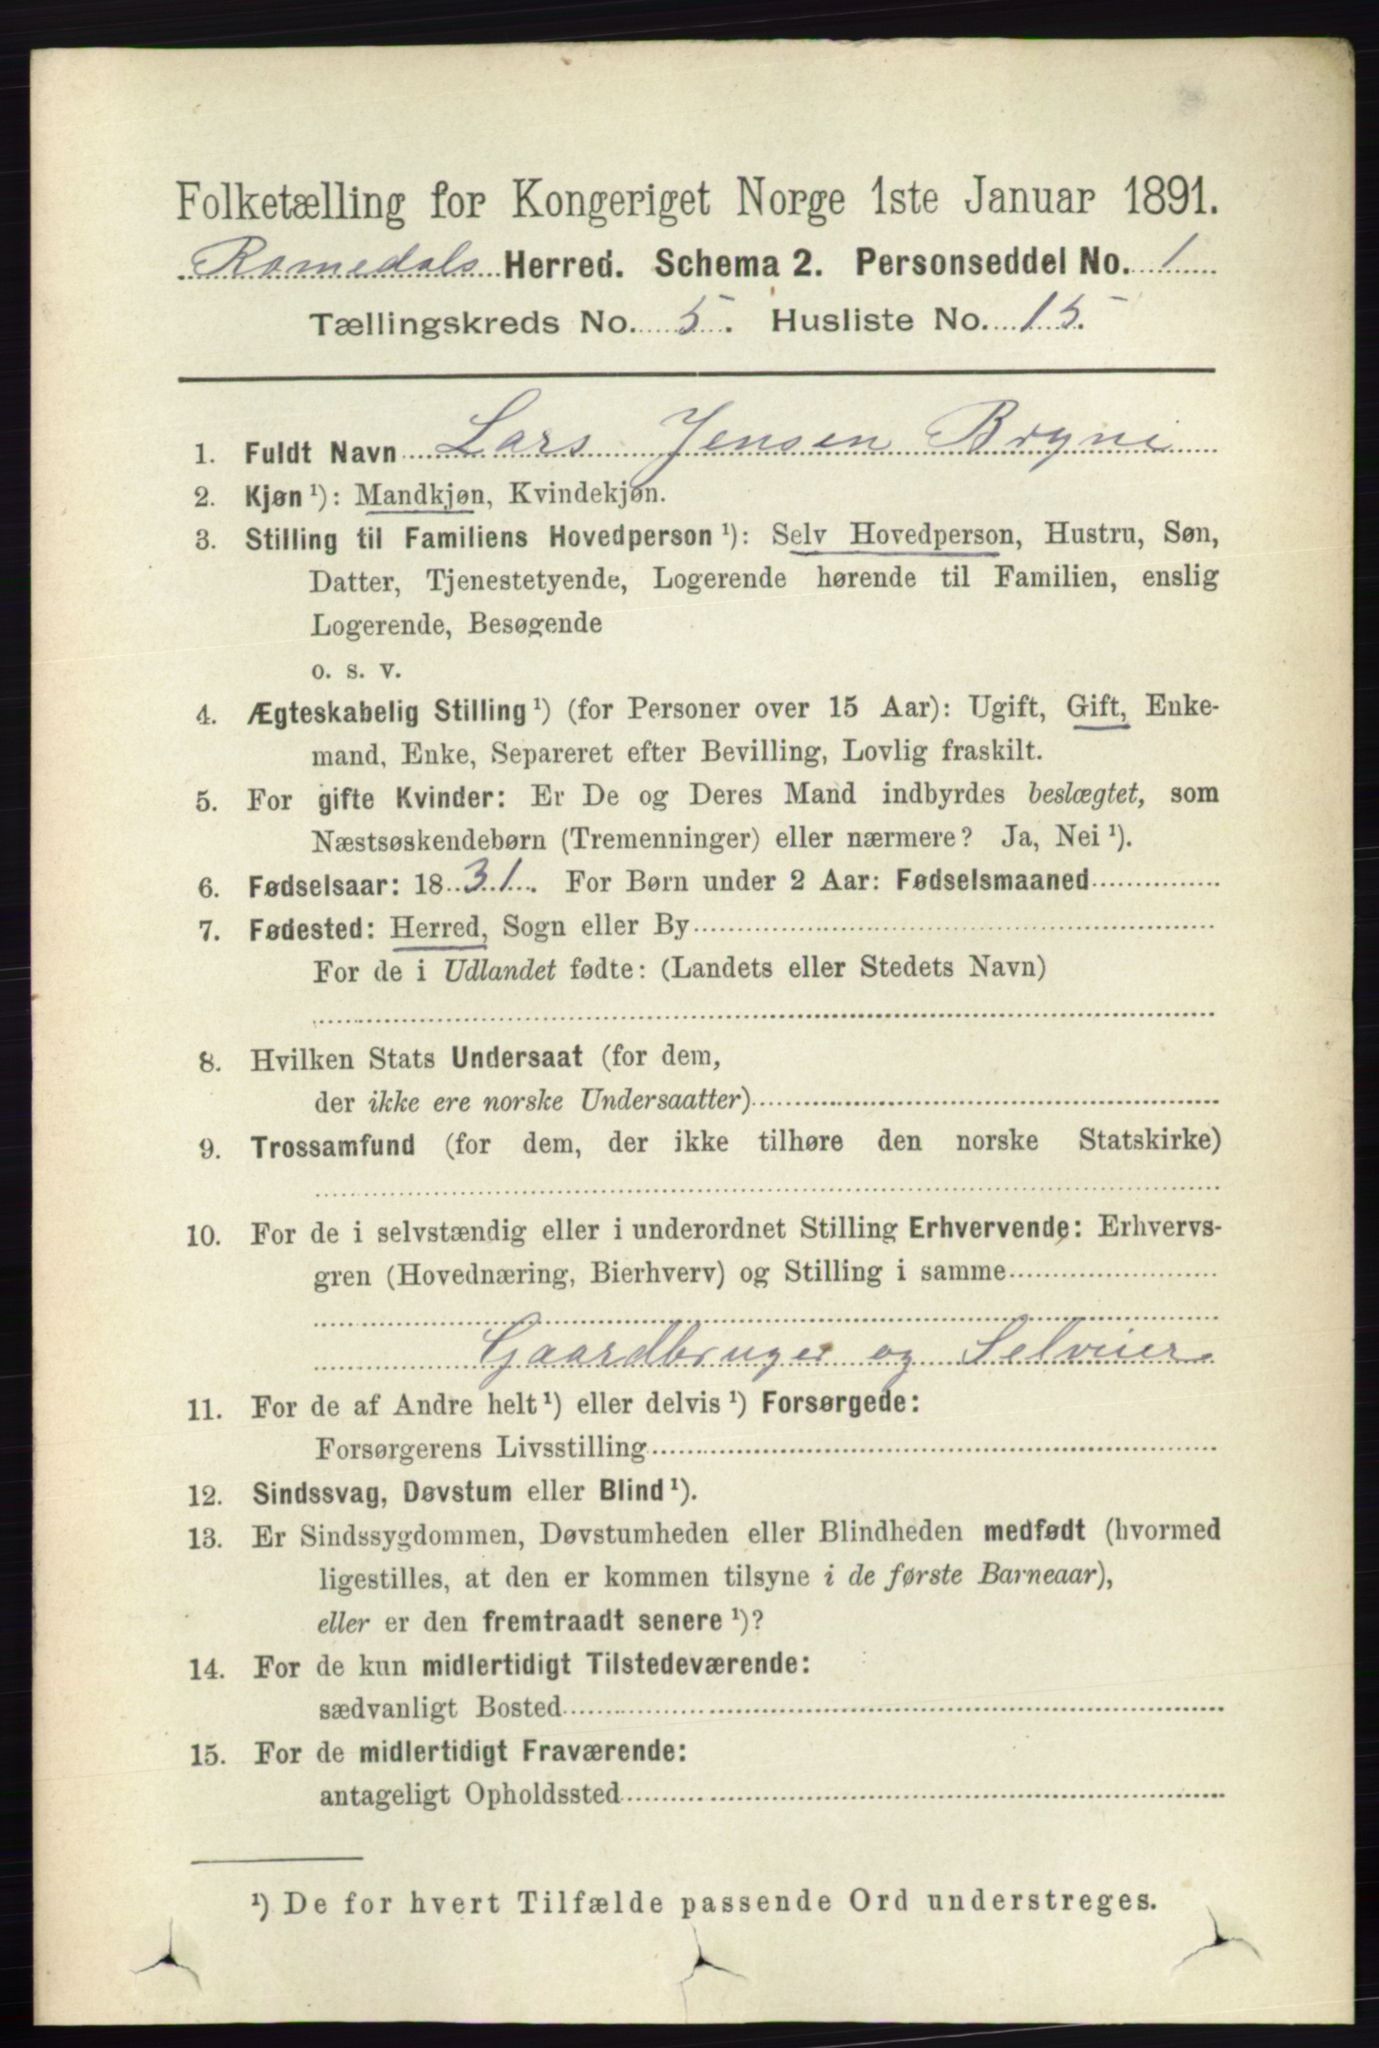 Folketælling for Kongeriget Norge 1ste Januar 1891.
Romedals Herred. Schema 2. Personseddel No. 1
Tællingskreds No. 5. Husliste No. 15.
1. Fuldt Navn Lars Jensen Bryni
2. Kjøn ¹): Mandkjøn, Kvindekjøn.
3. Stilling til Familiens Hovedperson ¹): Selv Hovedperson, Hustru, Søn,
Datter, Tjenestetyende, Logerende hørende til Familien, enslig
Logerende, Besøgende
o. s. v.
4. Ægteskabelig Stilling ¹) (for Personer over 15 Aar): Ugift, Gift, Enke-
mand, Enke, Separeret efter Bevilling, Lovlig fraskilt.
5. For gifte Kvinder: Er De og Deres Mand indbyrdes beslægtet, som
Næstsøskendebørn (Tremenninger) eller nærmere? Ja, Nei ¹).
6. Fødselsaar: 1831. For Børn under 2 Aar: Fødselsmaaned
7. Fødested: Herred, Sogn eller By
For de i Udlandet fødte: (Landets eller Stedets Navn)
8. Hvilken Stats Undersaat (for dem,
der ikke ere norske Undersaatter)
9. Trossamfund (for dem, der ikke tilhøre den norske Statskirke)
10. For de i selvstændig eller i underordnet Stilling Erhvervende: Erhvervs-
gren (Hovednæring, Bierhverv) og Stilling i samme
Gaardbruger og Selveier
11. For de af Andre helt ¹) eller delvis ¹) Forsørgede:
Forsørgerens Livsstilling
12. Sindssvag, Døvstum eller Blind ¹).
13. Er Sindssygdommen, Døvstumheden eller Blindheden medfødt (hvormed
ligestilles, at den er kommen tilsyne i de første Barneaar),
eller er den fremtraadt senere ¹)?
14. For de kun midlertidigt Tilstedeværende:
sædvanligt Bosted
15. For de midlertidigt Fraværende:
antageligt Opholdssted
¹) De for hvert Tilfælde passende Ord understreges.